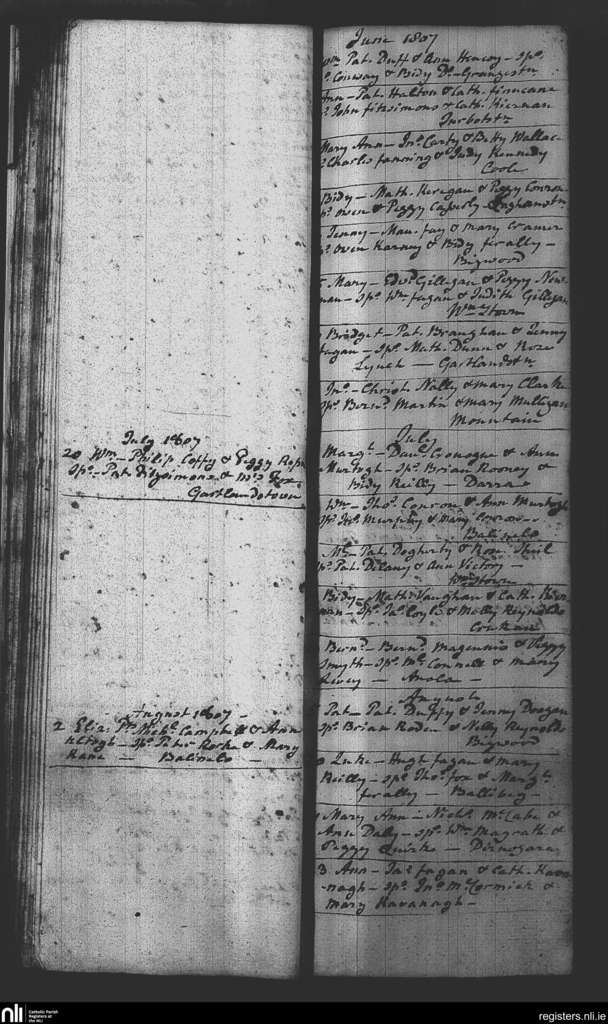 July 1807
20 Wm - Philip Coffy & Peggy
Sps - Pat fitzsimons & Mrs Fox
Gartlandstown
August 1807
2 Eliz.
- Sps Peter Rorke & Mary
Kane - Balinelo -
June 1807
Pat. Duff & Ann Heavey - Sps
Conway & Bidy Do - Grangestn
Ann - Pat. Halton & Cath. finucane
John fitzsimons & Cath. Kiernan
Turbotstn
Mary Ann - Jno Carty & Betty Wallace
Charles fanning & Judy Kennedy
Coole
Bidy - Math. Keregan & Peggy Conroe
Owen & Peggy
Jenny - Mau. fay & Mary Cramer
Owen Karney & Bidy ferally -
Bigwood
Mary - Edwd Gilligan & Peggy New-
nan - Sps Wm fagan & Judith Gilligan
Wmstown
Bridget - Pat. Branghan & Jenny
fagan - Sps Math. Dunn & Rose
Lynch - Gartlandstn
Jno - Christr Nally & Mary Clarke
Sps Bernd Martin & Mary Mulligan
Mountain
July
Margt - Danl Conogue & Ann
Murtogh - Sps Brian Rooney &
Bidy Reilly - Darra
Wm - Thos Conroe & Ann Murtogh
Sps Jas Murphy & Mary Conroe
Balinelo
Ml - Pat. Dogherty & Rose Shiel
Sps Pat. Delany & Ann Victory -
Wmstown
Bidy - Math. Vaughan & Cath. Kier-
nan - Sps Jas Coyle & Molly Reynolds
Bernd - Bernd Magennis & Peggy
Smyth - Sps Ml Connell & Mary
- Anola -
August
Pat - Pat. Duffy & Jenny Doogan
Sps Brian Roden & Nelly Reynolds
Bigwood
Luke - Hugh fagan & Mary
Reilly - Sps Thos fox & Margt
ferally - Ballibeg -
Mary Ann - Nichs McCabe &
Ann Daly - Sps Wm Magrath &
Peggy Quirke -
3 Ann - Jas fagan & Cath. Kava-
nagh - Sps Jno McCormick &
Mary Kavanagh -
nli
Catholic Parish
Registers at
the NLI
registers.nli.ie